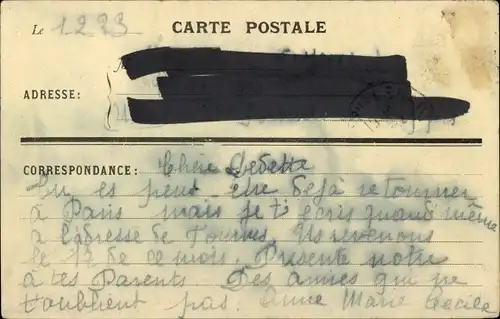 Le 1.2.23
CARTE POSTALE
ADRESSE:
CORRESPONDANCE: Chère Dedette
Tu es peut être déjà retourner
à Paris mais je t'écris quand même
à l'adresse de Ns revenons
le 12 de ce mois. Presente notre
à tes Parents. Des amies qui ne
t'oublient pas. Anne Marie Cecile